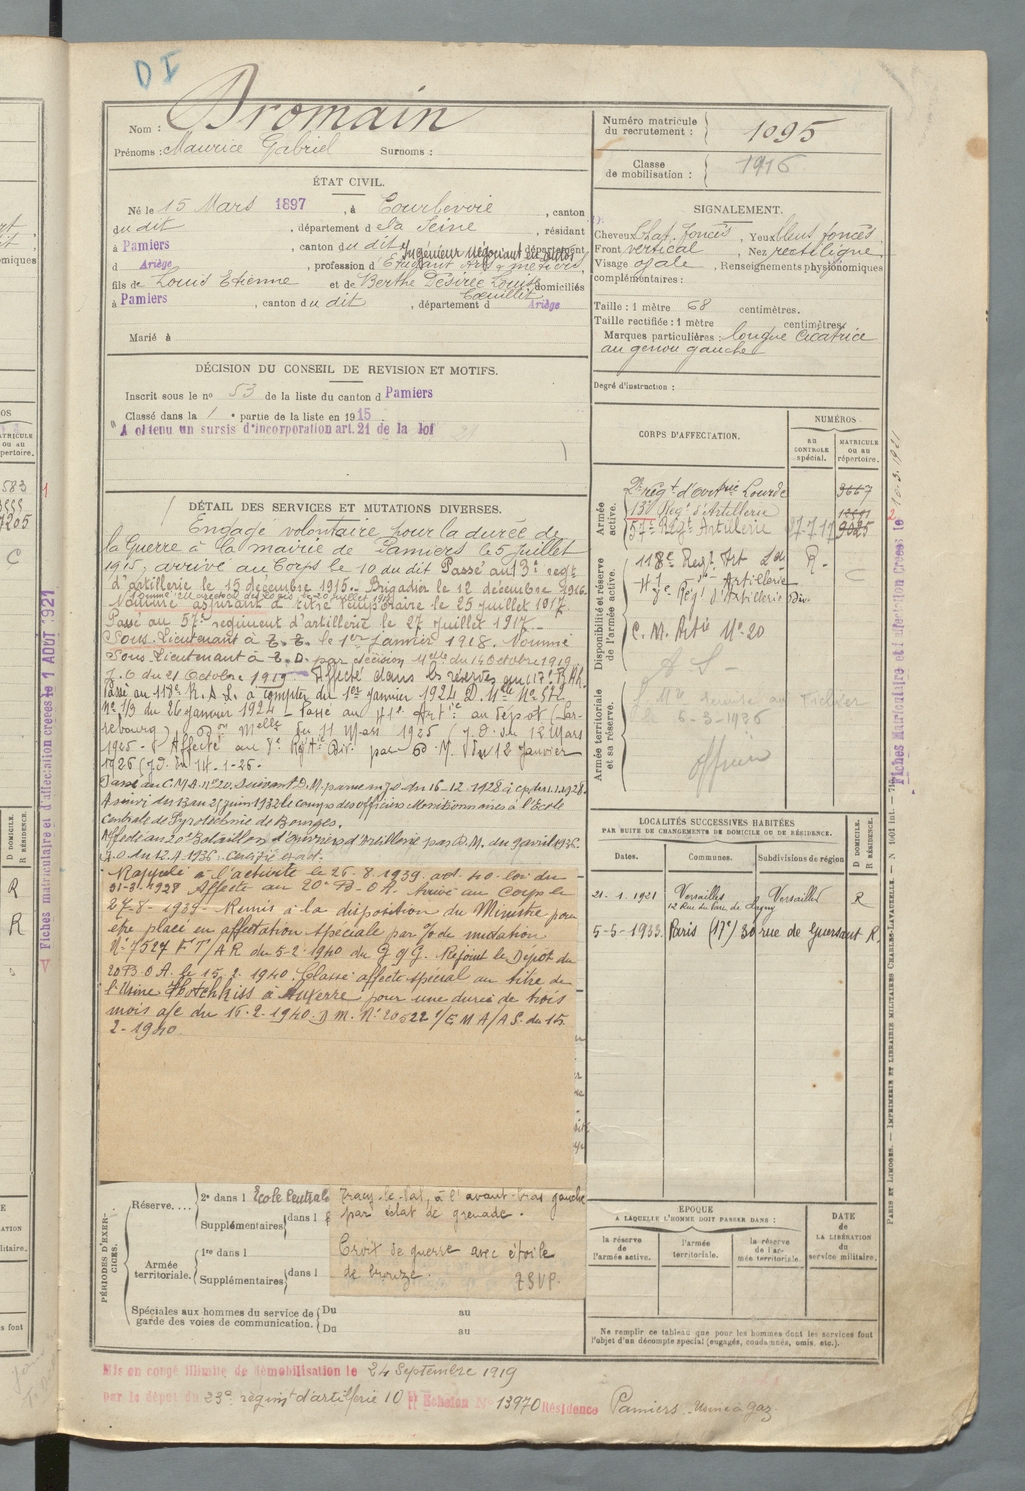 D I
Nom : Dromain
Prénoms : Maurice Gabriel Surnoms :
Numéro matricule du recrutement : 1095
Classe de mobilisation : 1916
ÉTAT CIVIL.
Né le 15 Mars 1897, à Courbevoie, canton
du dit, département d la Seine, résidant
à Pamiers, canton du dit, département
Ingénieur Négociant en autos
d Ariège, profession d Etudiant Arts & métiers
fils de Louis Etienne et de Berthe Désirée Louise domiciliés
à Pamiers, canton du dit, département d Ariège
Marié à
SIGNALEMENT.
Cheveux Chat. foncés, Yeux bleus foncés
Front vertical, Nez rectiligne
Visage ovale, Renseignements physionomiques
complémentaires :
Taille : 1 mètre 68 centimètres.
Taille rectifiée : 1 mètre centimètres.
Marques particulières : longue cicatrice
au genou gauche
Degré d'instruction :
DÉCISION DU CONSEIL DE REVISION ET MOTIFS.
Inscrit sous le no 53 de la liste du canton d Pamiers
Classé dans la 1e partie de la liste en 1915
A obtenu un sursis d'incorporation art. 21 de la loi
DÉTAIL DES SERVICES ET MUTATIONS DIVERSES.
Engagé volontaire pour la durée de
la Guerre à la mairie de Pamiers le 5 Juillet
1915, arrivé au Corps le 10 du dit Passé au 13e régt
d'artillerie le 15 décembre 1915. Brigadier le 12 décembre 1916
Nommé aspirant à titre temporaire le 25 juillet 1917
Passé au 57e régiment d'artillerie le 27 juillet 1917.
Sous-Lieutenant à T. T. le 1er Janvier 1918. Nommé
Sous-Lieutenant à T. D. par décision Melle du 14 Octobre 1919
J. O du 21 Octobre 1919 Affecté dans les réserves au 117e R.A.L.
Passé au 118e R.A.L. à compter du 1er Janvier 1924 D. Mlle No 572
No 1/3 du 26 janvier 1924 - Passé au
Don Melle du 11 Mars 1925 (J.O. du 12 Mars
1925 - Affecté au 8e Régt Art Div. par D. M. du 12 Janvier
1926 (J.O. du 14-1-26.
Passé au C.M.A. No 20. Suivant D.M. parue au J.O du 16-12-1928 à cp du 1.1.1928.
A suivi du 13 au 25 juin 1932 le cours des officiers Munitionnaires à l'Ecole
Centrale de Pyrotechnie de Bourges.
Affecté au 20e Bataillon d'ouvriers d'Artillerie par D.M. du 9 avril 1936
J.O du 12.4.1936.
Rappelé à l'activité le 26-8-1939. art. 40. loi du
31-3-1928 Affecté au 20e B.O.A. Arrivé au Corps le
27-8-1939 - Remis à la disposition du Ministre pour
être placé en affectation spéciale par % de mutation
No 7527 FT/AR du 5-2-1940 du G. Q G. Rejoint le Dépôt du
20 B.O A. le 15.2.1940. Classé affecté spécial au titre de
l'Usine Hotchkiss à Auxerre pour une durée de trois
mois a/c du 16.2.1940. D m. No 20622 1/EMA/AS. du 15
2-1940.
CORPS D'AFFECTATION.
NUMÉROS
au contrôle spécial.
matricule ou au répertoire.
Armée active.
2e régt d'artrie Lourde 3667
13e Régt d'Artillerie
57e Régt Artillerie 27-7-17 9025
Disponibilité et réserve de l'armée active.
118e Regt. Art Lde R.
C. M. Artie No 20
A S -
Armée territoriale et sa réserve.
6-3-1936
officier
LOCALITÉS SUCCESSIVES HABITÉES
PAR SUITE DE CHANGEMENTS DE DOMICILE OU DE RÉSIDENCE.
Dates. Communes. Subdivisions de région D DOMICILE. R RÉSIDENCE.
21-1-1921 Versailles Versailles R
12 Rue du Parc de Clagny
5-5-1933. Paris (17e) 30 rue de Guersant R.
ÉPOQUE
A LAQUELLE L'HOMME DOIT PASSER DANS :
la réserve de l'armée active.
l'armée territoriale.
la réserve de l'armée territoriale.
DATE de LA LIBÉRATION du service militaire.
Ne remplir ce tableau que pour les hommes dont les services font
l'objet d'un décompte spécial (engagés, condamnés, omis, etc.).
PÉRIODES D'EXERCICES.
Réserve.... 2e dans l Ecole Centrale
Supplémentaires dans l
Armée territoriale. 1re dans l
Supplémentaires dans l
Spéciales aux hommes du service de Du au
garde des voies de communication. Du au
Tracy-le-Val, à l'avant-bras gauche
par éclat de grenade.
Croix de guerre avec étoile
de bronze. TSVP.
Mis en congé illimité de démobilisation le 24 Septembre 1919
par le dépôt du 23e régimt d'artillerie 10e Echelon No 13970 Résidence Pamiers Usine à gaz
Fiches matriculaire et d'affectation créées le 1 AOUT 1921
Fiches Matriculaire et d'affectation Créées le
PARIS ET LIMOGES. — IMPRIMERIE ET LIBRAIRIE MILITAIRES CHARLES-LAVAUZELLE.